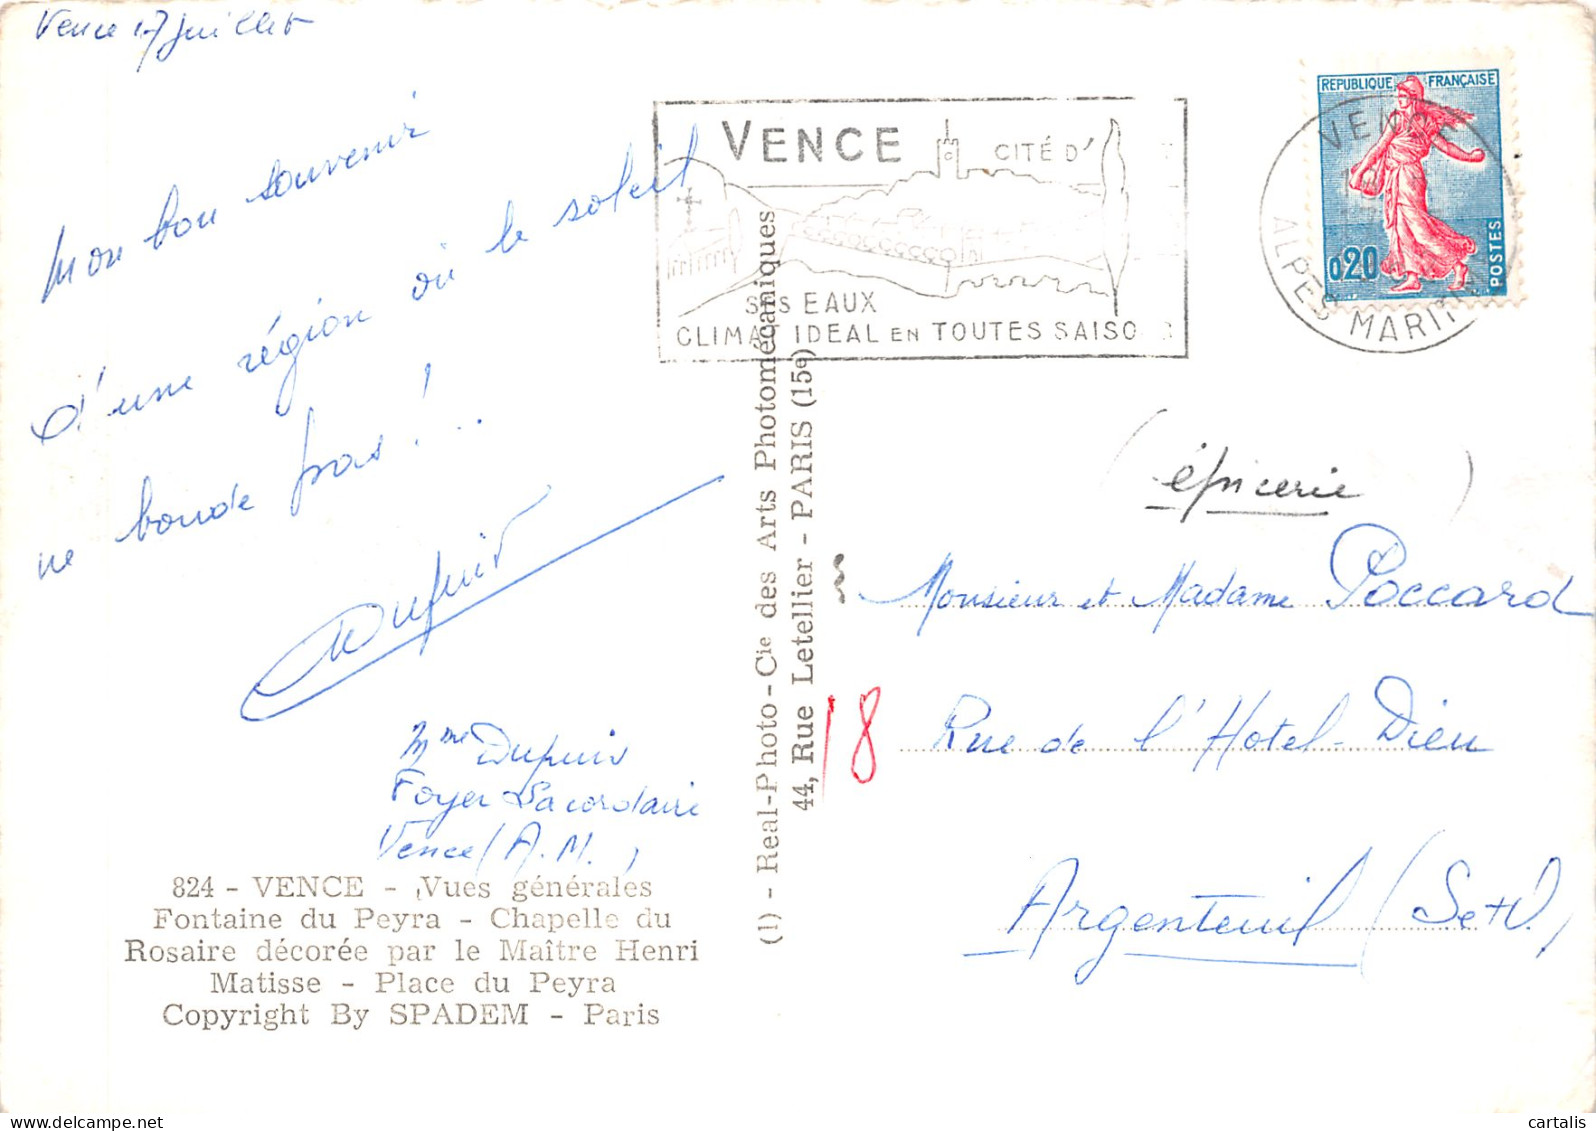 Vence 17 Juillet
Mon bon souvenir
d'une région où le soleil
ne boude pas!...
Dupuis
Mme Dupuis
Foyer Lacordaire
Vence (A.M.)
824 - VENCE - Vues générales
Fontaine du Peyra - Chapelle du
Rosaire décorée par le Maître Henri
Matisse - Place du Peyra
Copyright By SPADEM - Paris
(1) - Real-Photo - Cie des Arts Photomécaniques
44, Rue Letellier - PARIS (15e)
VENCE
CITÉ D'
SES EAUX
CLIMAT IDEAL EN TOUTES SAISO
REPUBLIQUE FRANÇAISE
0,20
POSTES
VENCE
ALPES MARIT
(épicerie)
Monsieur et Madame Poccard
18 Rue de l'Hotel-Dieu
Argenteuil (S et O)
cartalis
www.delcampe.net